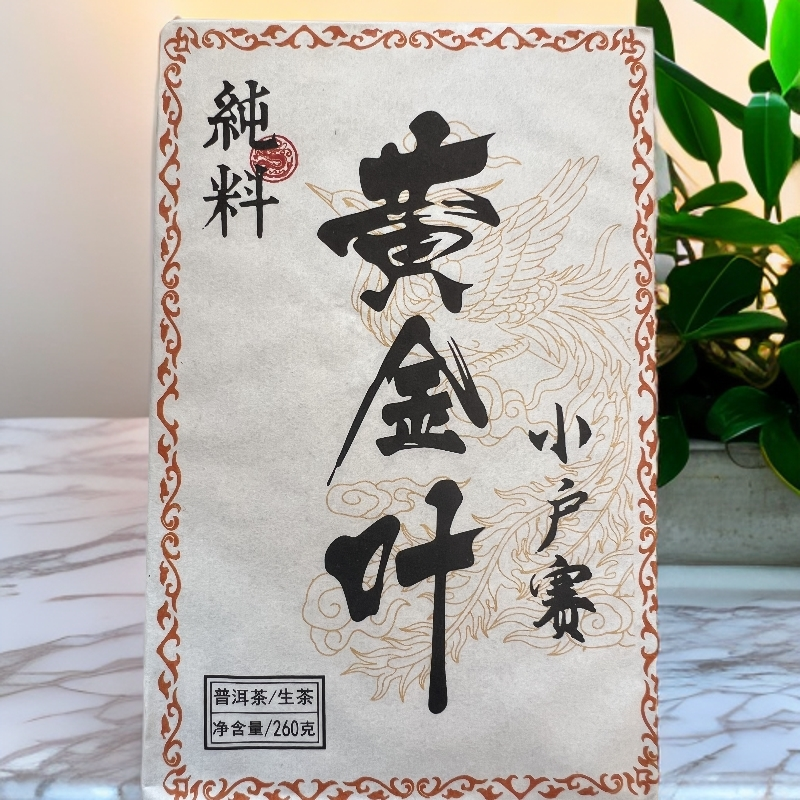 純料
黄金叶
小户赛
普洱茶/生茶
净含量/260克